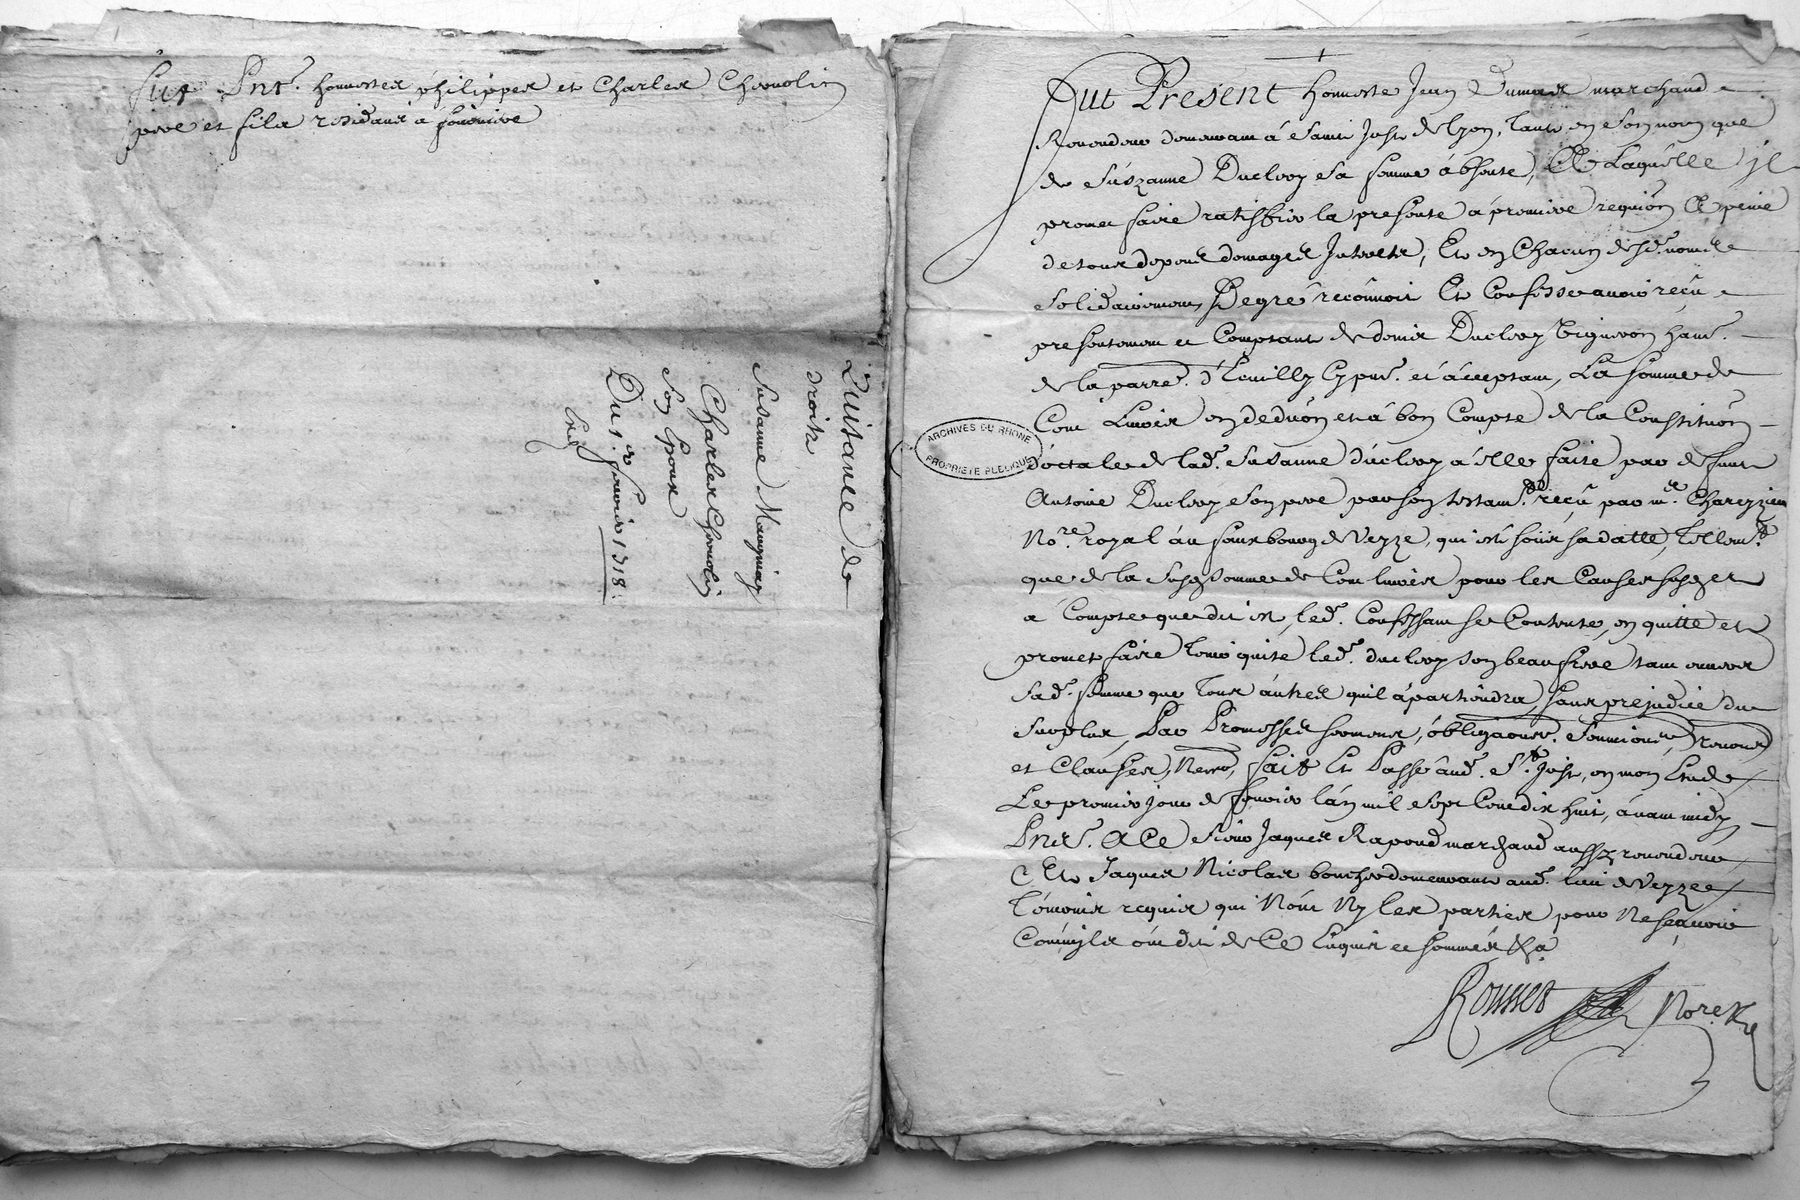 fut Pnt. honnestes philippes et Charles Chevrolin
pere et fils residans a
Quittance de
droits
Susanne
Charles Chevrolin
son Epoux
Du 1.er fevrier 1718.
Exp
Fut Present honneste Jean Dumas marchand
Revendeur demeurant à Saint Just de lyon, tant en son nom que
de Suszanne Duclery sa femme absente, A Laquelle jl
promet faire ratiffier la presente a premiere requion A peine
de tous depens domages Interests, Et en Chacun desd. noms
solidairement, De gré reconnoit Et Confesse avoir reçu
presentement et Comptant de denis Duclery Vigneron hant.
de la parre. d'Ecuilly Cy pnt. et acceptant, La somme de
Cent Livres en deduon et a bon Compte de la Constituon
dottale de lad. Susanne duclery a elle faite par deffunt
Antoine Duclery son pere par son testamt. reçu par me. Charezieu
Nore. royal au faux bourg de Veyze, qui est sous sa datte, Tellemt.
que de la susd somme de Cent livres pour les Causes susd et
a Compte que dit est, led. Confessant se Contente, en quitte et
promet faire tenir quitte led. duclery son beaufrere tant envers
sad. femme que tous autres quil apartiendra, sans prejudice du
surplus, Par Promesses serments, obligaons. soumions, renons
et Clauses, Necess, fait Et Passé aud. St. Just, en mon Etude
Le premier jour de fevrier l'an mil sept Cent dix huit, avant midy
Pnts. A Ce sieur Jaques Rapoud marchand aussy revendeur,
Et Jaques Nicolas boucher demeurants aud. lieu de Veyze
temoins requis qui N'ont Ny les parties pour Ne sçavoir
Comm'jls ont dit de Ce Enquis et sommés &a
Rousset Nore. R
ARCHIVES DU RHONE
PROPRIETE PUBLIQUE